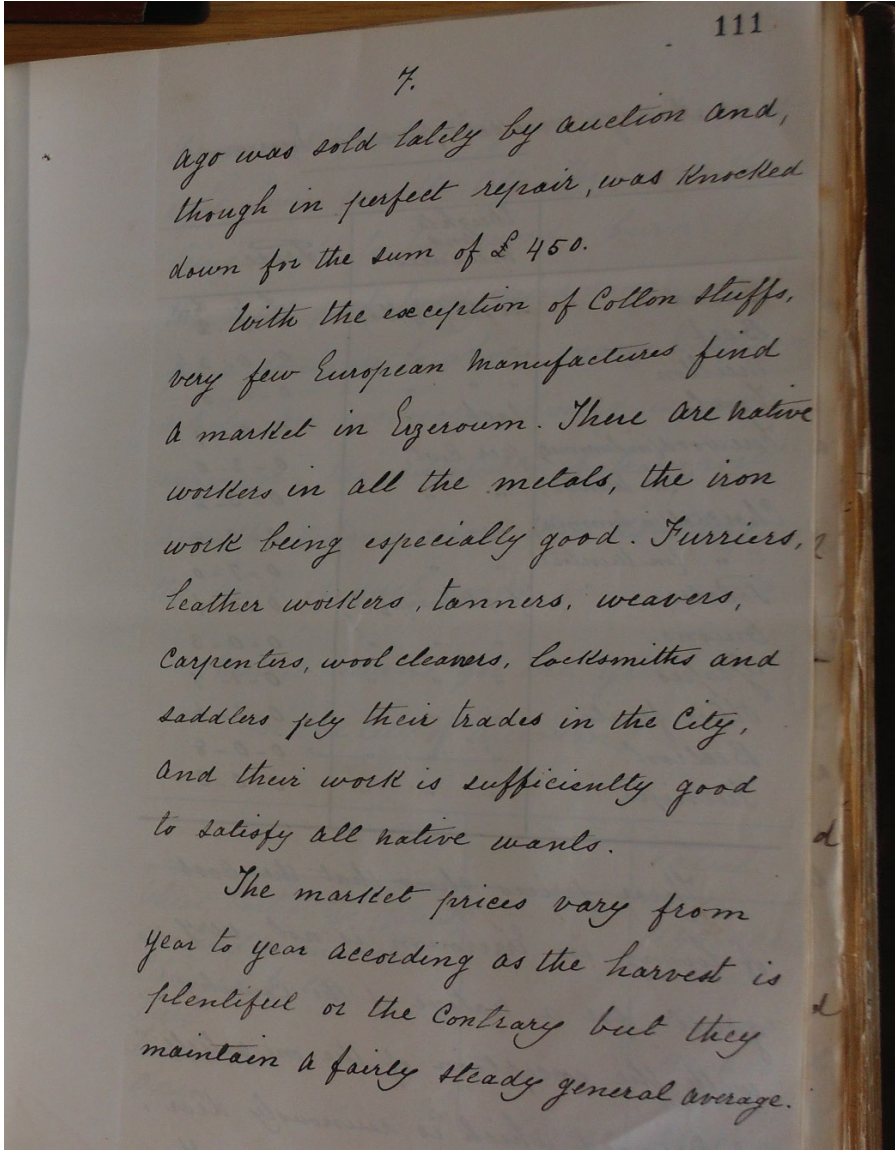 111
7.
ago was sold lately by auction and,
though in perfect repair, was knocked
down for the sum of £ 450.
With the exception of Cotton stuffs,
very few European Manufactures find
a market in Erzeroum. There are native
workers in all the metals, the iron
work being especially good. Furriers,
leather workers, tanners, weavers,
carpenters, wool cleaners, locksmiths and
saddlers ply their trades in the City,
and their work is sufficiently good
to satisfy all native wants.
The market prices vary from
year to year according as the harvest is
plentiful or the contrary but they
maintain a fairly steady general average.